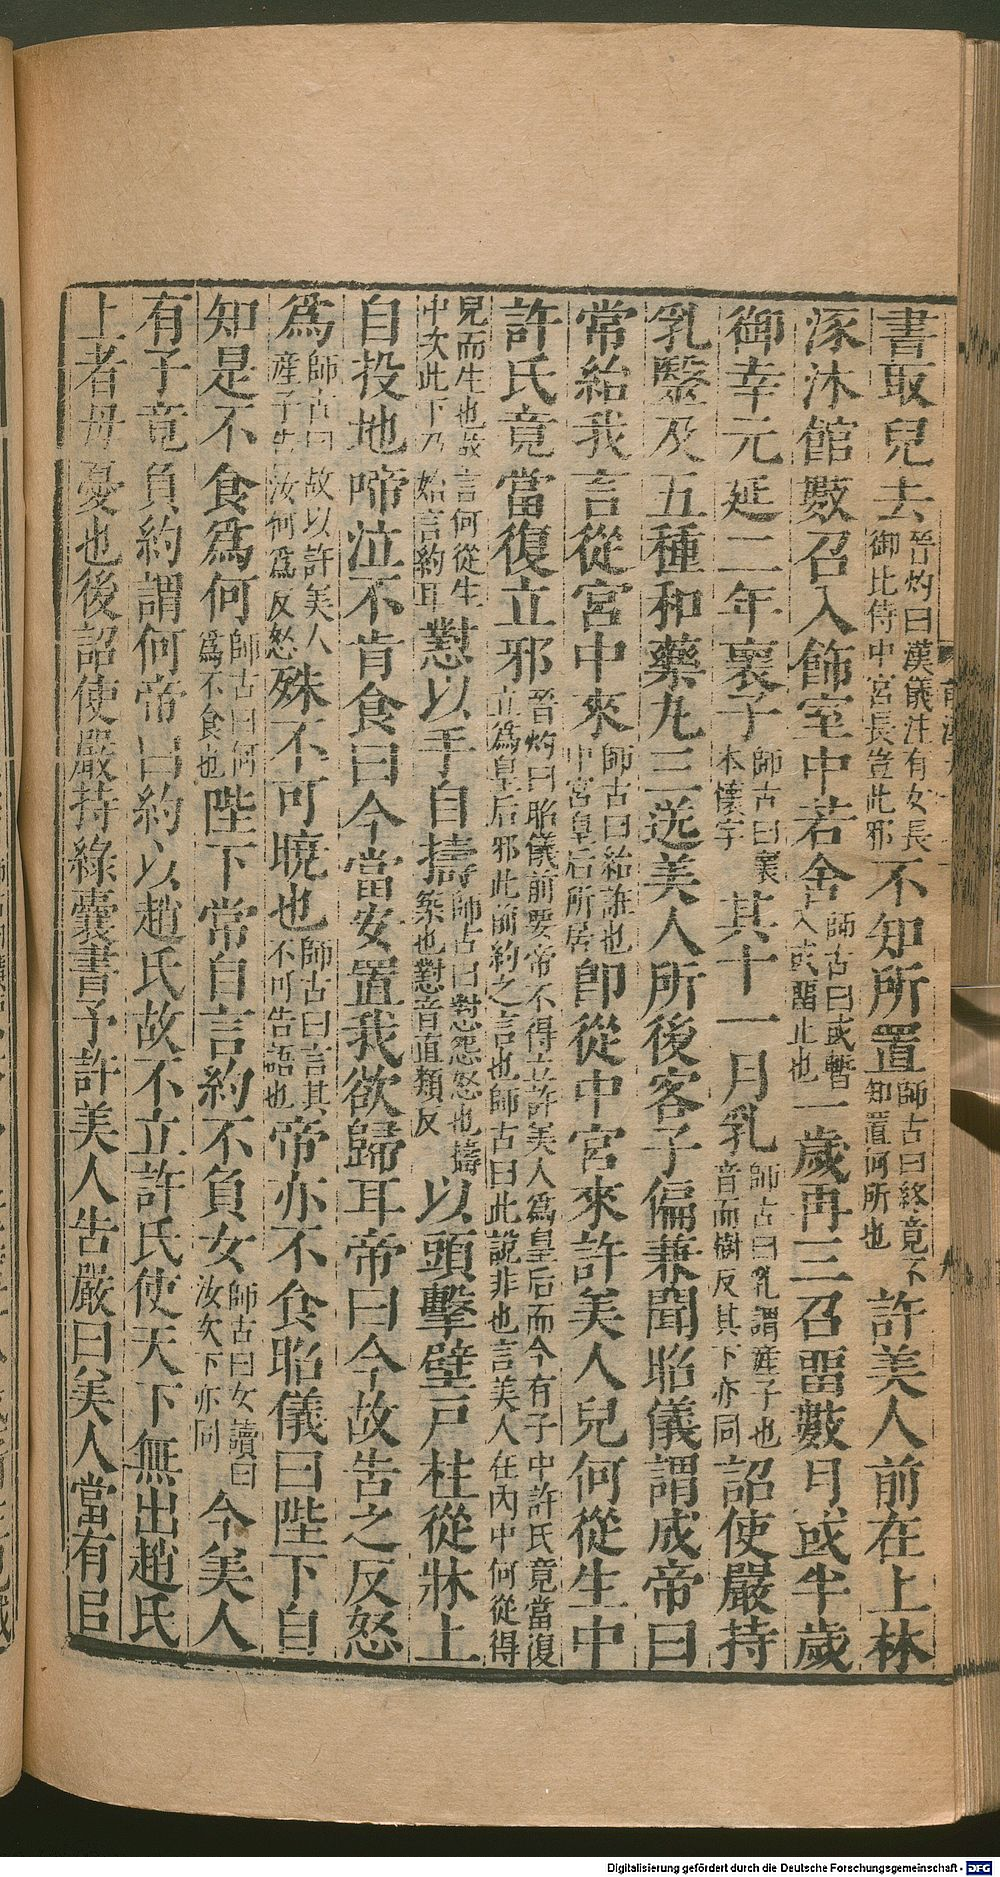 書取兒去晉灼曰漢儀注有女長御比侍中宮長豈此邪不知所置師古曰終竟不知置何所也許美人前在上林
涿沐館數召入飾室中若舍師古曰或暫入或畱止也一歲再三召畱數月或半歲
御幸元延二年褱子師古曰褱本懷字其十一月乳師古曰乳謂產子也音而樹反其下亦同詔使嚴持
乳毉及五種和藥丸三送美人所後客子偏兼聞昭儀謂成帝曰
常紿我言從宮中來師古曰紿誑也中宮皇后所居卽從中宮來許美人兒何從生中
許氏竟當復立邪晉灼曰昭儀前要帝不得立許美人爲皇后而今有子中許氏竟當復立爲皇后邪此前約之言也師古曰此說非也言美人在內中何從得
兒而生也故言何從生中次此下乃始言約耳懟以手自擣師古曰懟怨怒也擣築也懟音直類反以頭擊壁戸柱從牀上
自投地啼泣不肯食曰今當安置我欲歸耳帝曰今故告之反怒
爲師古曰故以許美人產子告汝何爲反怒殊不可曉也師古曰言其不可告語也帝亦不食昭儀曰陛下自
知是不食爲何師古曰何爲不食也陛下常自言約不負女師古曰女讀曰汝次下亦同今美人
有子竟負約謂何帝曰約以趙氏故不立許氏使天下無出趙氏
上者毋憂也後詔使嚴持綠囊書予許美人告嚴曰美人當有㠯
Digitalisierung gefördert durch die Deutsche Forschungsgemeinschaft - DFG